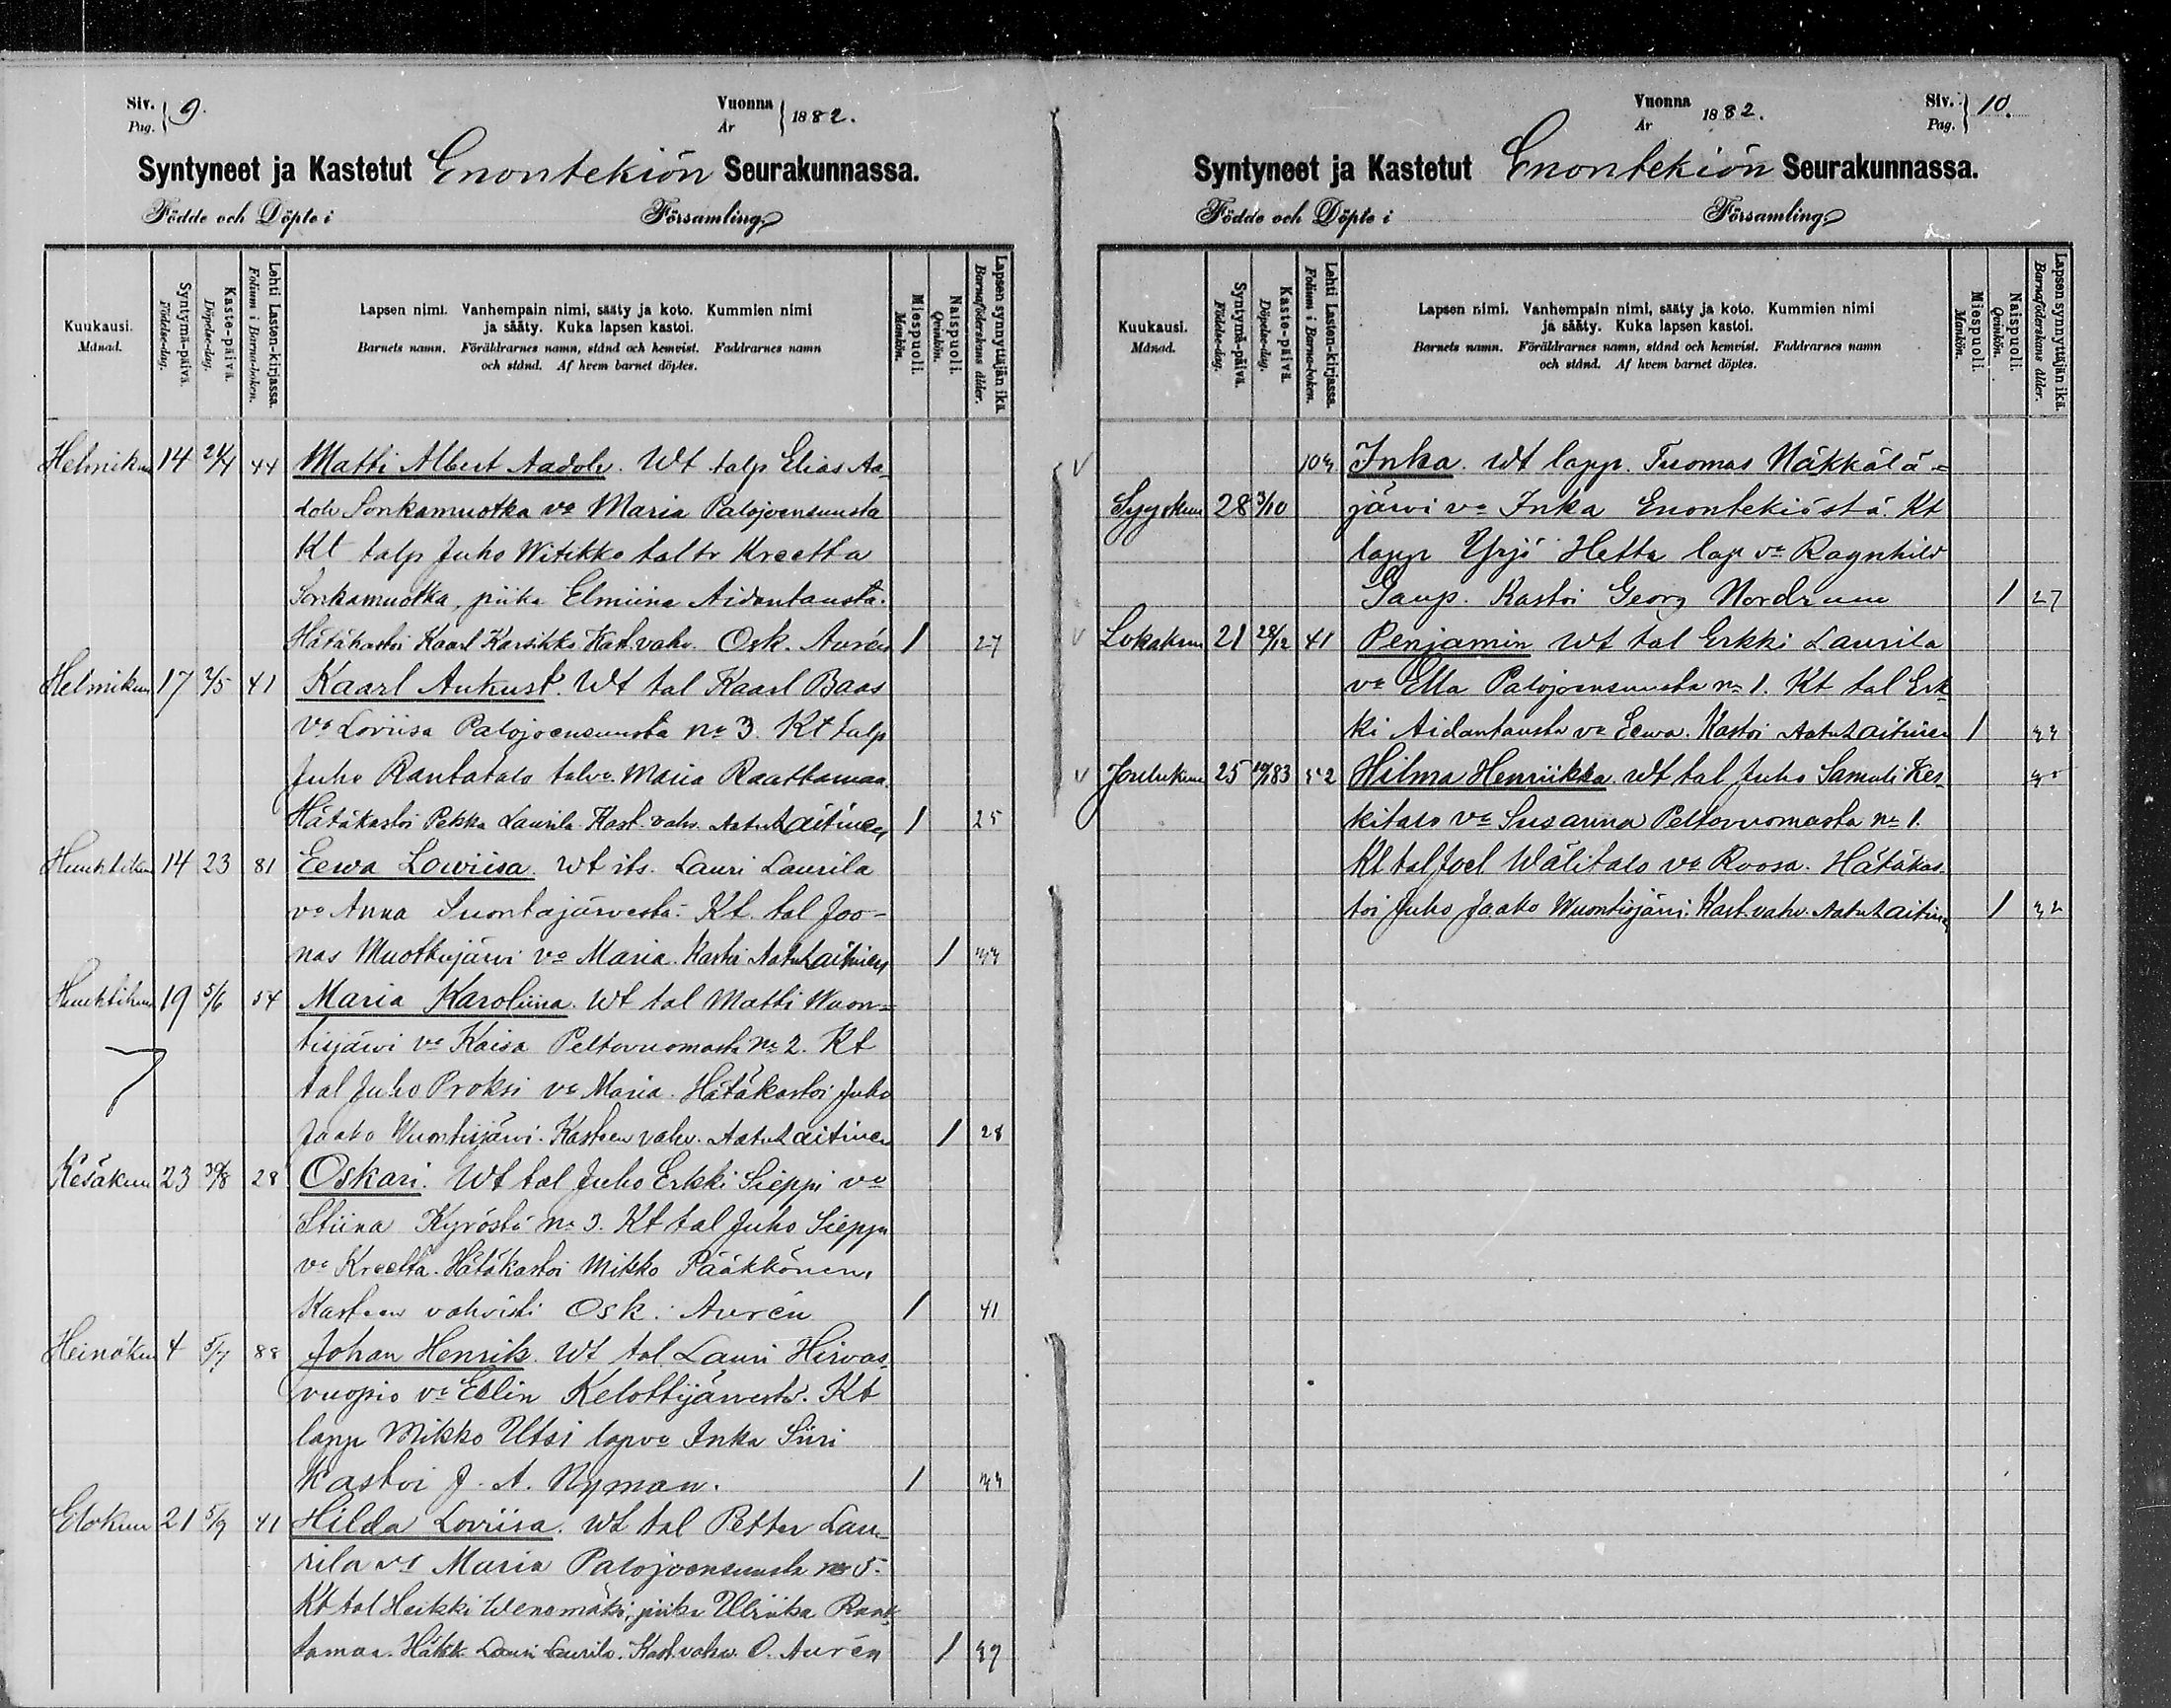 Siv. 9. Vuonna 1882.
Pag. År
Syntyneet ja Kastetut Enontekiön Seurakunnassa.
Födde och Döpte i Församling
Kuukausi. Månad.
Syntymä-päivä. Födelse-dag.
Kaste-päivä. Döpelse-dag.
Lehti Lasten-kirjassa. Folium i Barna-boken.
Lapsen nimi. Vanhempain nimi, sääty ja koto. Kummien nimi
ja sääty. Kuka lapsen kastoi.
Barnets namn. Föräldrarnes namn, stånd och hemvist. Faddrarnes namn
och stånd. Af hvem barnet döptes.
Miespuoli. Mankön.
Naispuoli. Qvinkön.
Lapsen synnyttäjän ikä. Barnaföderskans ålder.
Helmikuu 14 2/4 44 Matti Albert Aadolv. Wt talp Elias Aa-
dolv Sonkamuotka vo Maria Palojoensuusta
Kt talp Juho Witikko taltr Kreetta
Sonkamuotka, piika Elmiina Aidantausta.
Hätäkastoi Kaarl Karsikko Kast. vahv. Osk. Aurén 1 27
Helmikuu 17 2/5 41 Kaarl Aukust. Wt tal Kaarl Baas
vo Loviisa Palojoensuusta No 3. Kt talp
Juho Rantatalo talvo Maria Raattamaa.
Hätäkastoi Pekka Laurila. Kast. vahv. Aatu Laitinen 1 25
Huuhtikuu 14 23 81 Eewa Lowiisa. Wt its. Lauri Laurila
vo Anna Suontajärvestä. Kt. tal Joo-
nas Muotkajärvi vo Maria. Kastoi Aatu Laitinen 1 33
Huuhtikuu 19 5/6 54 Maria Karoliina. Wt tal Matti Wuon-
tisjärvi vo Kaisa Peltovuomasta No 2. Kt
tal Juho Proksi vo Maria. Hätäkastoi Juho
Jaako Wuontisjärvi. Kasteen vahv. Aatu Laitinen 1 28
Kesäkuu 23 30/8 28 Oskari. Wt tal Juho Erkki Sieppi vo
Stiina Kyröstä No 3. Kt tal Juho Sieppi
vo Kreetta. Hätäkastoi Mikko Pääkkönen,
Kasteen vahvisti Osk. Aurén 1 41
Heinäkuu 4 5/7 88 Johan Henrik. Wt tal. Lauri Hirvas-
vuopio vo Ellin Kelottijärvestä. Kt
lapp Mikko Utsi lapvo Inka Siiri
Kastoi J. A. Nyman. 1 33
Elokuu 21 5/9 41 Hilda Loviisa. Wt tal Petter Lau-
rila vo Maria Palojoensuusta no 5.
Kt tal Heikki Wenemäki, piika Ulriika Raat-
tamaa. Hätäk Lauri Laurila. Kast. vahv. O. Aurén 1 39
Vuonna 1882. Siv. 10.
År Pag.
Syntyneet ja Kastetut Enontekiön Seurakunnassa.
Födde och Döpte i Församling
Kuukausi. Månad.
Syntymä-päivä. Födelse-dag.
Kaste-päivä. Döpelse-dag.
Lehti Lasten-kirjassa. Folium i Barna-boken.
Lapsen nimi. Vanhempain nimi, sääty ja koto. Kummien nimi
ja sääty. Kuka lapsen kastoi.
Barnets namn. Föräldrarnes namn, stånd och hemvist. Faddrarnes namn
och stånd. Af hvem barnet döptes.
Miespuoli. Mankön.
Naispuoli. Qvinkön.
Lapsen synnyttäjän ikä. Barnaföderskans ålder.
103 Inka. Wt lapp. Tuomas Näkkälä-
Syyskuu 28 3/10 järvi vo Inka Enontekiöstä. Kt
lapp Yrjö Hetta lap vo Ragnhild
Gaup. Kastoi Georg Nordrum 1 27
Lokakuu 21 28/12 41 Penjamin Wt tal Erkki Laurila
vo Ella Palojoensuusta no 1. Kt tal Erk-
ki Aidantausta vo Eewa. Kastoi Aatu Laitinen 1 33
Joulukuu 25 10/1 83 52 Hilma Henriikka. Wt tal Juho Samuli Kes-
kitalo vo Susanna Peltovuomasta no 1.
Kt tal Joel Wälitalo vo Roosa. Hätäkas-
toi Juho Jaako Wuontisjärvi. Kast. vahv. Aatu Laitinen 1 32